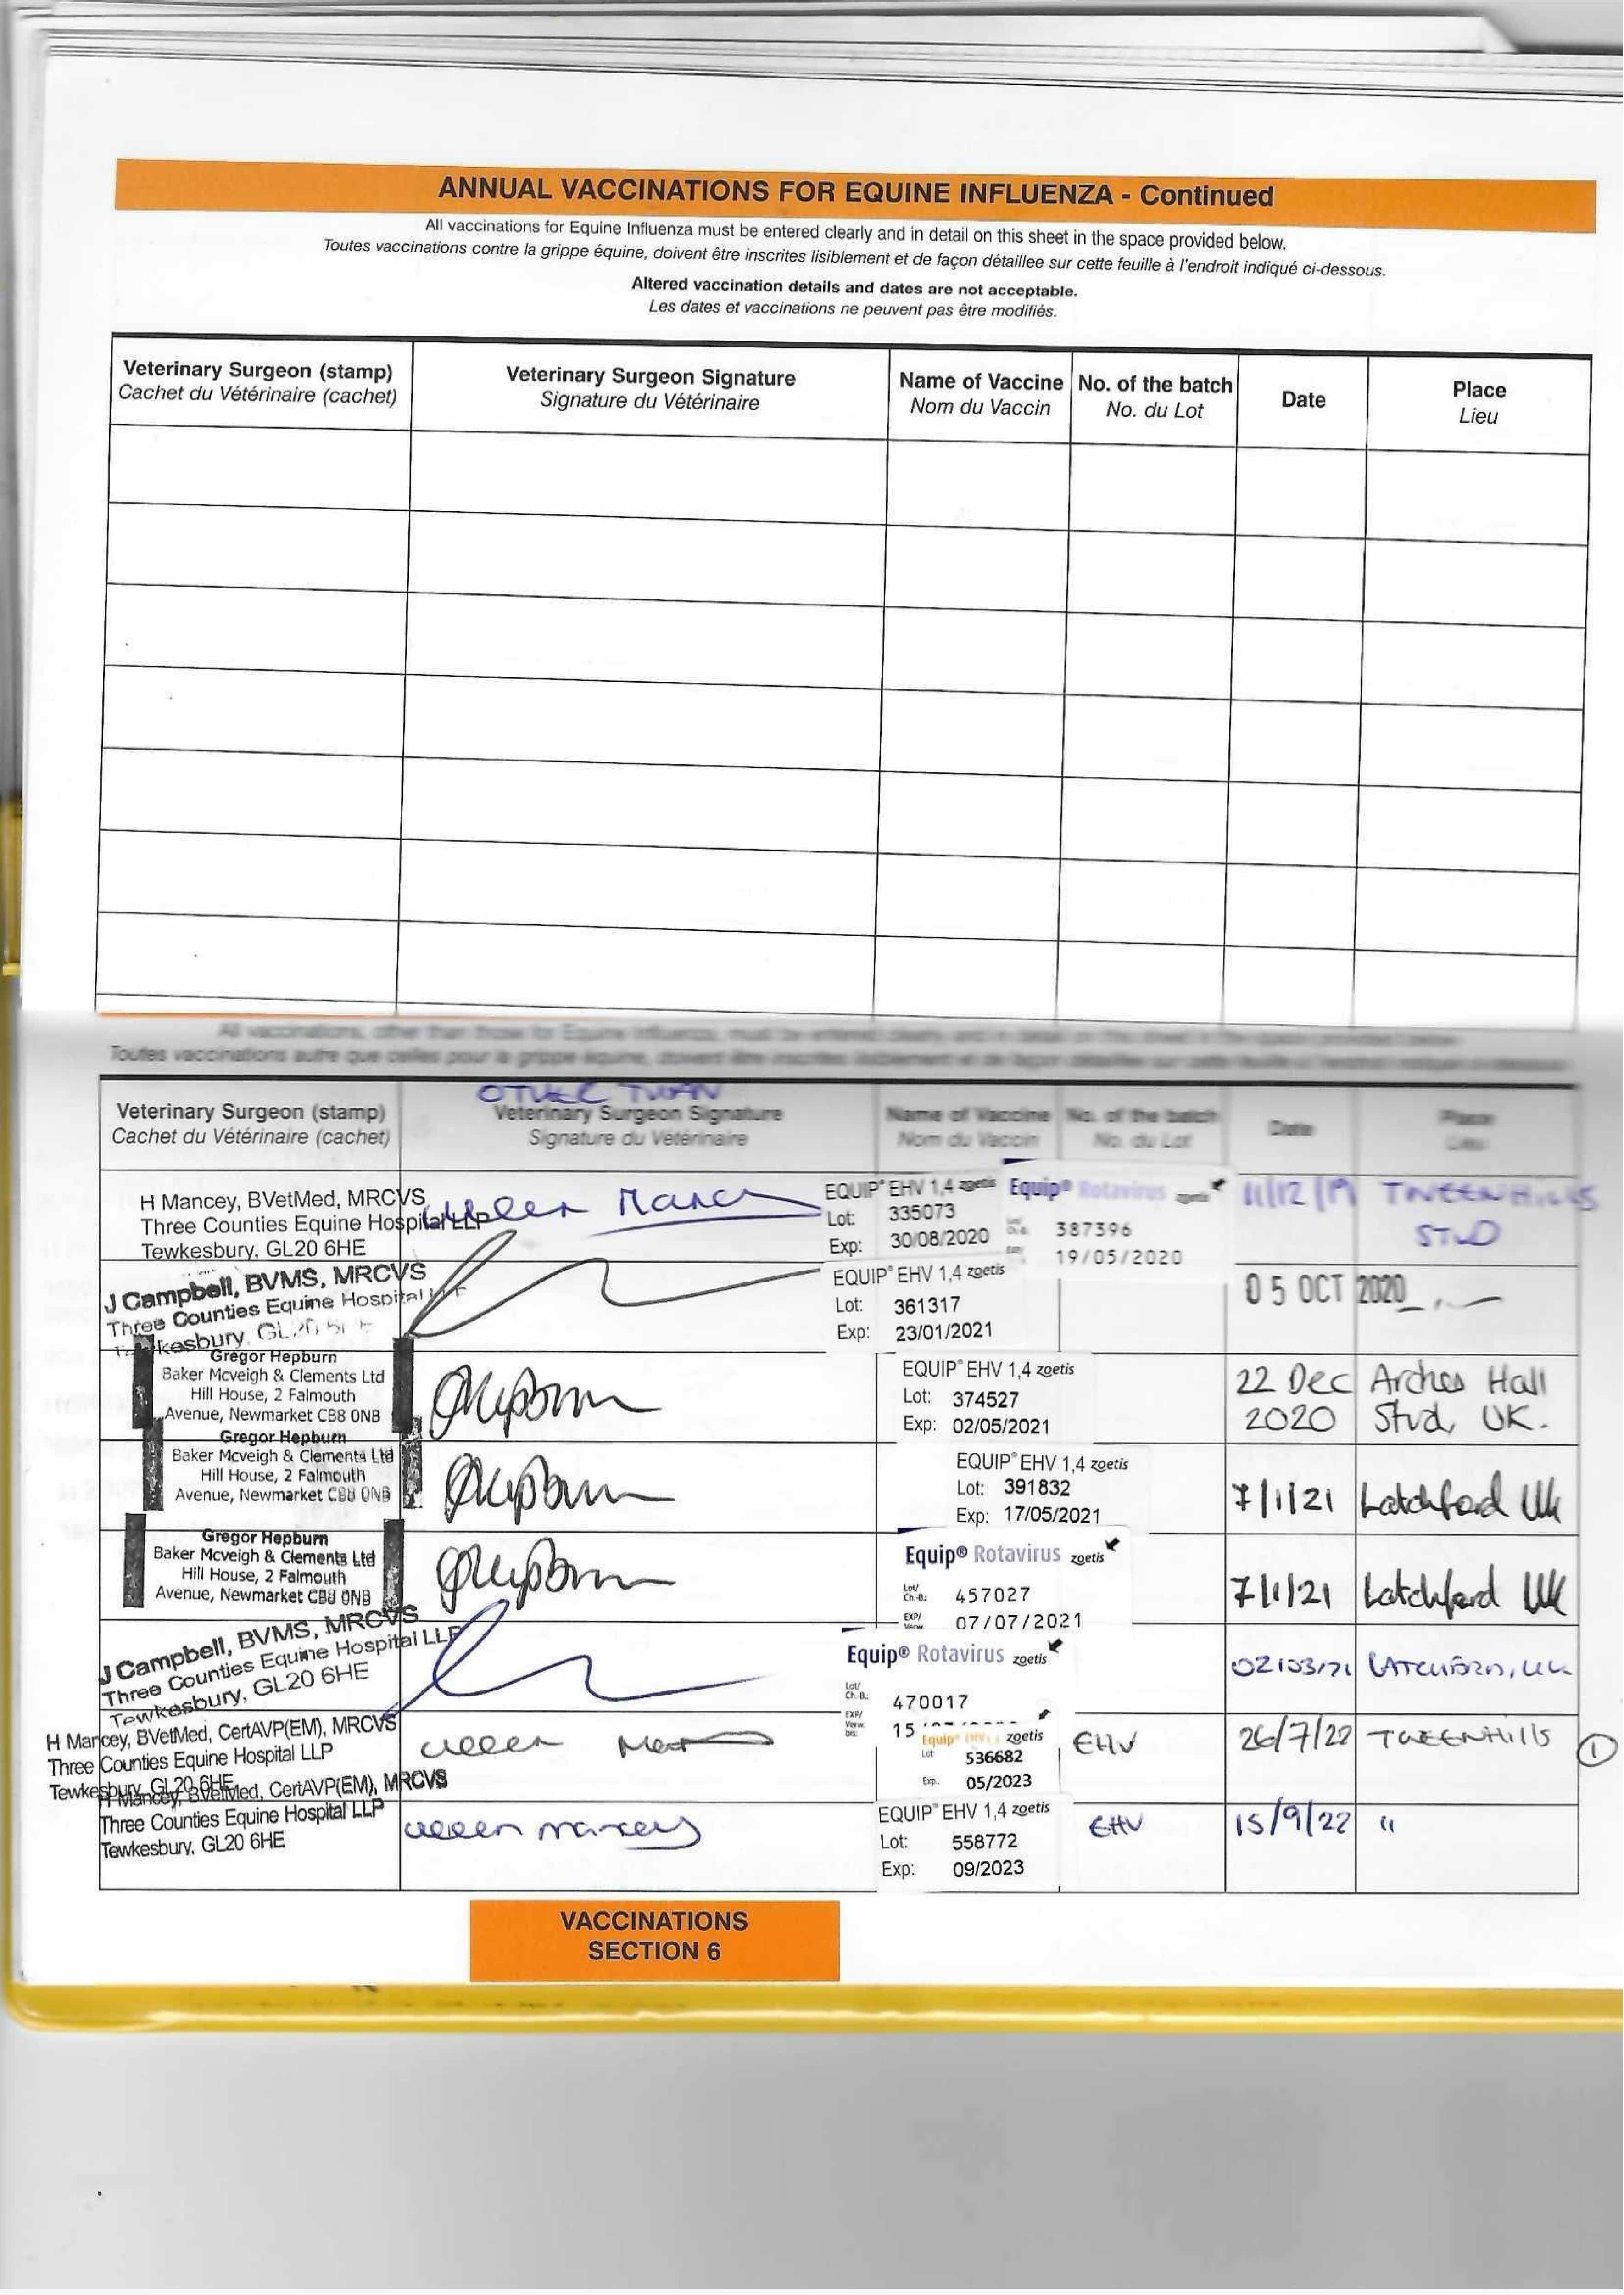 ANNUAL VACCINATIONS FOR EQUINE INFLUENZA - Continued
All vaccinations for Equine Influenza must be entered clearly and in detail on this sheet in the space provided below.
Toutes vaccinations contre la grippe équine, doivent être inscrites lisiblement et de façon détaillee sur cette feuille à l'endroit indiqué ci-dessous.
Altered vaccination details and dates are not acceptable.
Les dates et vaccinations ne peuvent pas être modifiés.
Veterinary Surgeon (stamp)
Cachet du Vétérinaire (cachet)
Veterinary Surgeon Signature
Signature du Vétérinaire
Name of Vaccine
Nom du Vaccin
No. of the batch
No. du Lot
Date
Place
Lieu
All vaccinations, other than those for Equine Influenza, must be entered clearly and in detail on this sheet in the space provided below
Toutes vaccinations autre que celles pour la grippe équine, doivent être inscrites lisiblement et de façon détaillee sur cette feuille à l'endroit indiqué ci-dessous
OTHER THAN
Veterinary Surgeon (stamp)
Cachet du Vétérinaire (cachet)
Veterinary Surgeon Signature
Signature du Vétérinaire
Name of Vaccine
Nom du Vaccin
No. of the batch
No. du Lot
Date
Place
Lieu
H Mancey, BVetMed, MRCVS
Three Counties Equine Hospital LLP
Tewkesbury, GL20 6HE
EQUIP® EHV 1,4 zoetis
Lot: 335073
Exp: 30/08/2020
Equip® Rotavirus zoetis
387396
19/05/2020
11/12/19
TWEENHILLS
STUD
J Campbell, BVMS, MRCVS
Three Counties Equine Hospital
kesbury, GL20
EQUIP® EHV 1,4 zoetis
Lot: 361317
Exp: 23/01/2021
05 OCT 2020
Gregor Hepburn
Baker Mcveigh & Clements Ltd
Hill House, 2 Falmouth
Avenue, Newmarket CB8 0NB
EQUIP® EHV 1,4 zoetis
Lot: 374527
Exp: 02/05/2021
22 Dec
2020
Arches Hall
Stud, UK.
Gregor Hepburn
Baker Mcveigh & Clements Ltd
Hill House, 2 Falmouth
Avenue, Newmarket CB8 0NB
EQUIP® EHV 1,4 zoetis
Lot: 391832
Exp: 17/05/2021
7/1/21
Latchford Uk
Gregor Hepburn
Baker Mcveigh & Clements Ltd
Hill House, 2 Falmouth
Avenue, Newmarket CB8 0NB
Equip® Rotavirus zoetis
Lot/
Ch.-B.: 457027
EXP/
Verw. 07/07/2021
7/1/21
Latchford UK
J Campbell, BVMS, MRCVS
Three Counties Equine Hospital LLP
Tewkesbury, GL20 6HE
Equip® Rotavirus zoetis
Lot/
Ch.-B.: 470017
EXP/
Verw.
bis: 15
02/03/21
LATCHFORD, UK
H Mancey, BVetMed, CertAVP(EM), MRCVS
Three Counties Equine Hospital LLP
Tewkesbury, GL20 6HE
Helen
Equip EHV zoetis
Lot 536682
Exp. 05/2023
EHV
26/7/22
TWEENHills
1
H Mancey, BVetMed, CertAVP(EM), MRCVS
Three Counties Equine Hospital LLP
Tewkesbury, GL20 6HE
Helen Mancey
EQUIP® EHV 1,4 zoetis
Lot: 558772
Exp: 09/2023
EHV
15/9/22
"
VACCINATIONS
SECTION 6